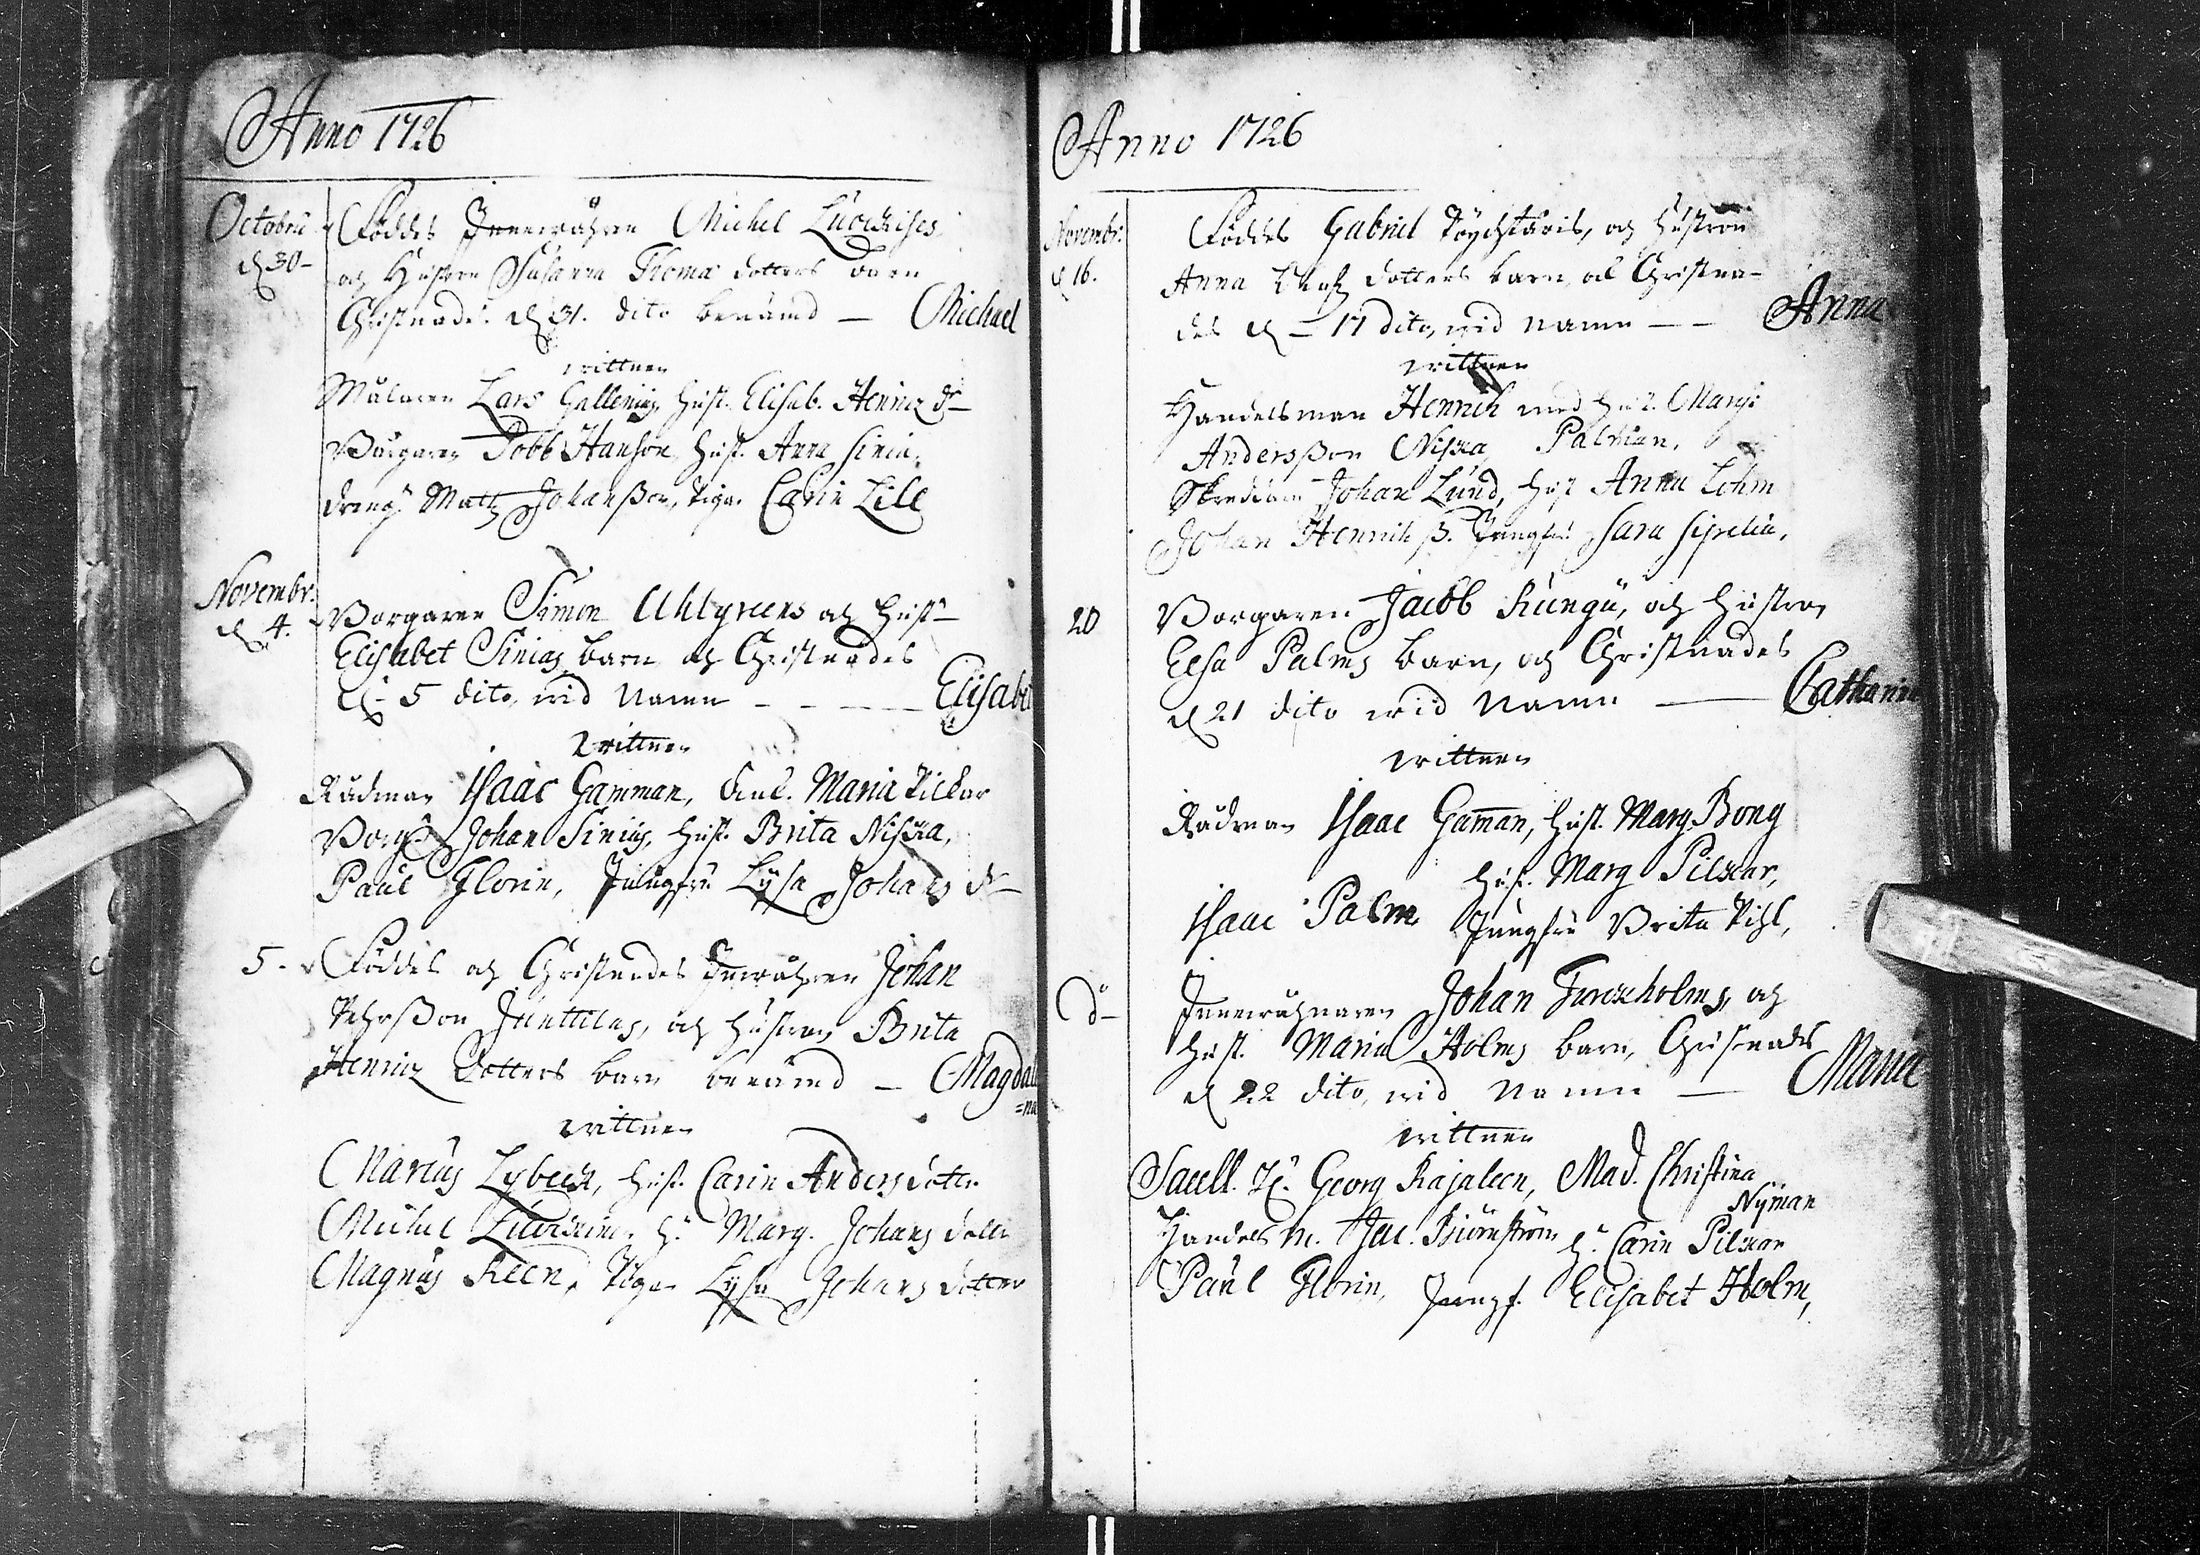 Anno 1726
Octobris
d 30
Föddes Inwåhnaren Michel
och Hustru Susanna Thomæ dotters barn
Christnades d 31. dito benämd — Michael
wittnen
Målaren Lars Gallenius, Hust. Elisab. Henrics dr
Borgaren Jobb Hanson, Hust. Anna Sinia,
dreng. Matts Johansson, Piga Carin Lill
Novembr:
d 4.
Borgaren Simon Uhlgreens och Hust
Elisabet Sinias barn och Christnades
d 5 dito, wid Namn — Elisabe
wittnen
Rådman Isaac Gamman, Maria Pilkar
Borg. Johan Sinius, Hust. Brita Niska,
Paul Florin, Jungfru Lysa Johans dr
5.
Föddes och Christnades Inwåhnaren Johan
Pehrsson Junttilas, och Hustrus Brita
Henrics dotters barn benämd — Magdale
=na
wittnen
Marcus Lybeck, Hust. Carin Anders dotter
Michel H. Marg. Johans dotter
Magnus Keen, Piga Lysa Johans dotter
Anno 1726
Novembr:
d 16.
Föddes Gabriel och Hustrun
Anna dotters barn, och Christna-
des d — 17 dito, wid Namn — — Anna
wittnen
Handelsman Henrich med Hust. Marg:
Andersson Niska, Palman,
Johan Lund, Hust Anna Lohm
Johan Henrik ß. Jungfru Sara
20
Borgaren Jacob Kungu, och Hustrus
Elsa Palms barn, och Christnades
d 21 dito wid Namn — Catharina
wittnen
Rådman Isaac Gam̄an, Hust. Marg. Bong
Hust. Marg Pilkar,
Isaac Palm Jungfru Brita Pihl,
do
Innewåhnaren Johan Forssholms, och
Hust. Maria Holms barn, Christnades
d 22 dito, wid Namn — Maria
wittnen
Sacell. H. Georg Rajaleen, Mad. Christina
Nyman
Handels m. Isac. Biörnström H. Carin Pilkar
Paul Florin, Jungf. Elisabet Holm,